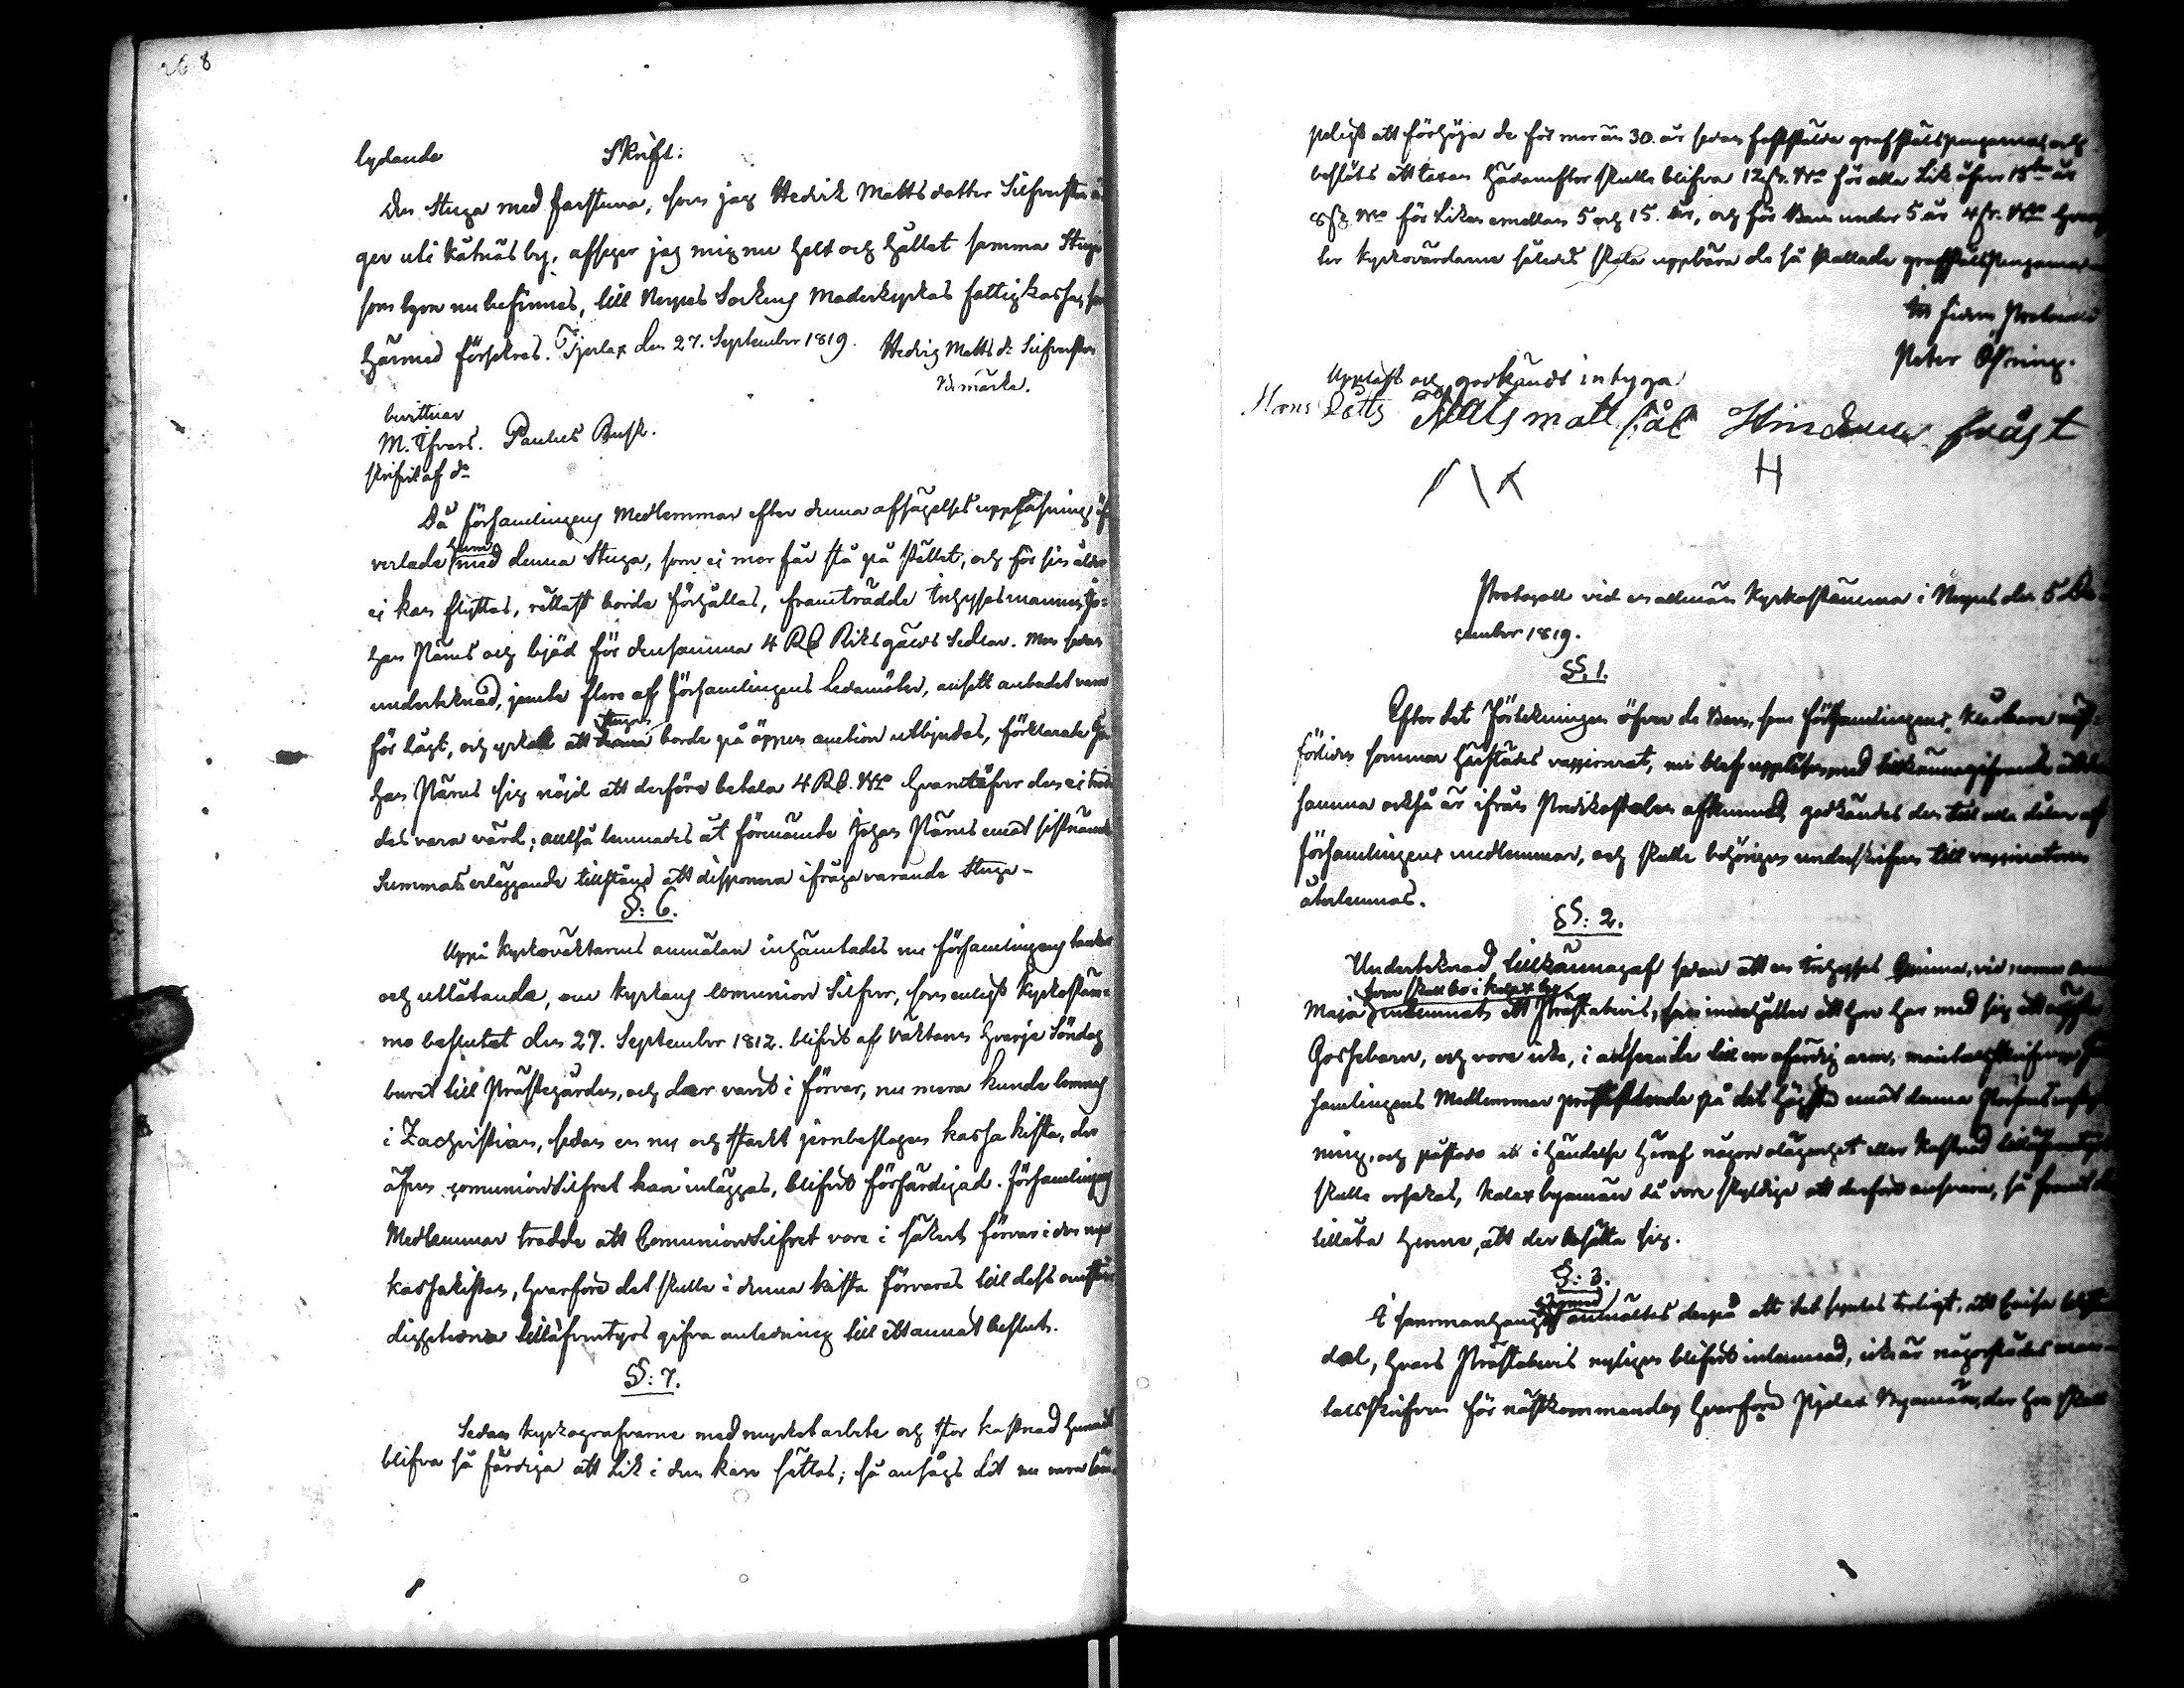 268
lydande Skrift:
Den Stuga med farstuva, som jag Hedvik Mattsdotter Silfversten ä-
ger uti Kåtnäs by, afsäger jag mig nu helt och hållet samma Stuga
som hon nu befinnes, till Nerpes Sockens Moderkyrkas fattigkassa, som
härmed försäkras. Tjerlax den 27. September 1819. Hedvig Matts dr Silfversten
Bomärke.
bevittnar
M. Ifvars. Paulus Busk.
skrifvit af dn
Då församlingens Medlemmar efter denna afsägelses uppläsning öf-
verlade huru med denna Stuga, som ei mer får stå på stället, och för sin ålder
ei kan flyttas, rättast borde förhållas, framträdde Inhyssesmannen Jo-
han Närns och bjöd för densamma 4 RD Riksgälds Sedlar. Men sedan
undertecknad, jemte flere af församlingens Ledamöter, ansett anbudet vara
för lågt, och yrkat att stugan borde på öppen auction utbjudas, förklarade Jo-
han Närns sig nöjd att derföre betala 4 RD. Bco hvarutöfver den ei trod-
des vara värd; alltså lemnades åt förenämde Johan Närns emot sistnämde
Summas erläggande tillstånd att disponera ifrågavarande Stuga-
§: 6.
Uppå Kyrkovaktarens anmälan inhämtades nu församlingens tankar
och utlåtande, om Kyrkans Comunion Silfver, som enligt Kyrkostäm-
mo beslutet den 27. September 1812. blifvit af Väktaren hvarje Söndag
buret till Prästegården, och der varit i förvar, nu mera kunde lemnas
i Zachristian, sedan en ny och starkt jernbeslagen kassa kista, der
äfven comunionSilfret kan inläggas, blifvit förfärdigad. Församlingens
Medlemmar trodde att ComunionSilfret vore i säkert förvar i den nya
kassakistan, hvarföre det skulle i denna kista förvaras till dess omstän-
digheterna tilläfventyrs gifva anledning till ett annat beslut.
§: 7.
Sedan Kyrkografvarne med mycket arbete och stor kostnad hunnit
blifva så färdiga att Lik i dem kan sättas; så ansågs det nu vara bil-
ligt att förhöja de för mer än 30. år sedan fastställde grafställspengarna, och
beslöts att taxan hädanefter skulle blifva 12 sk. Bco för alla Lik öfver 15 år
8 sk Bco för Liken emellan 5 och 15. år, och för Barn under 5 år 4 sk. Bco hvar-
ler Kyrkovärdarne således skola uppbära de så kallade grafställspengarna
In fidem Protocolli
Peter
Uppläst och godkändt intyga
Hans Lötts Mats matt Hindersson fråst
H
Protocoll vid en allmän Kyrkostämma i Nerpes den 5 De-
cember 1819.
§§. 1.
Efter det Förtekningen öfver de Barn, som församlingens Klåckare näst-
förliden sommar härstädes vaccinerat, nu blef uppläsen med tillkännagifvande att den-
samma också är ifrån Predikostolen afkunnad, godkändes den till alla delar af
församlingens medlemmar, och skulle behörigen underskrifven till vaccinatoren
återlemnas.
§§: 2.
Undertecknad tillkännagaf sedan att en Inhysses Qvinna, vid namn
Maja som skall bo i Kalax by inlemnat ett Prästabevis, som innehåller att hon har med sig ett oäkta
Gossebarn, och vore icke, i anseende till en ofärdig arm, mantalsskrifven, För-
samlingens Medlemmar protesterade på det högsta emot denna Persons inflytt-
ning, och påstods att i händelse häraf någon olägenhet eller kostnad tilläfventyrs
skulle orsakas, Kalax byamän då vore skyldige att derföre ansvara, så framt de
tillåta henne, att der bosätta sig.
§: 3.
I sammanhang härmed anmältes derpå att det syntes troligt, att Caisa
dal, hvars Prästabevis nyligen blifvit inlemnad, icke är någorstädes man-
talsskrifven för nästkommande, hvarföre Pjelax Byamän, der hon skall